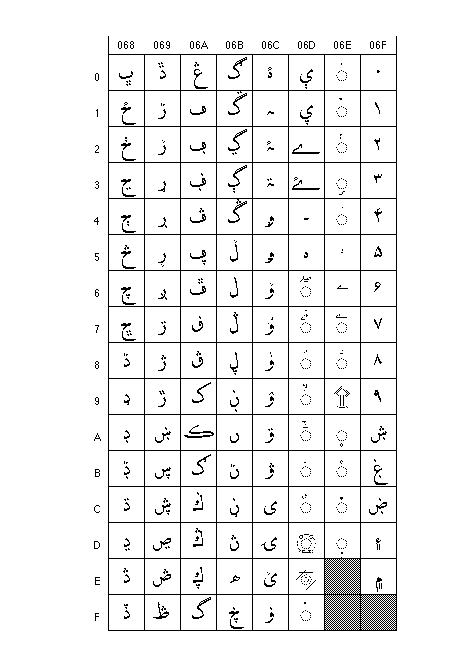 068 069 06A 06B 06C 06D 06E 06F
0 ڀ ڐ ڠ ڰ ۀ ې ◌۠ ۰
1 ځ ڑ ڡ ڱ ہ ۑ ◌ۡ ۱
2 ڂ ڒ ڢ ڲ ۂ ے ◌ۢ ۲
3 ڃ ړ ڣ ڳ ۃ ۓ ◌ۣ ۳
4 ڄ ڔ ڤ ڴ ۄ ۔ ◌ۤ ۴
5 څ ڕ ڥ ڵ ۅ ە ۥ ۵
6 چ ږ ڦ ڶ ۆ ◌ۖ ۦ ۶
7 ڇ ڗ ڧ ڷ ۇ ◌ۗ ◌ۧ ۷
8 ڈ ژ ڨ ڸ ۈ ◌ۘ ◌ۨ ۸
9 ډ ڙ ک ڹ ۉ ◌ۙ ۩ ۹
A ڊ ښ ڪ ں ۊ ◌ۚ ◌۪ ۺ
B ڋ ڛ ګ ڻ ۋ ◌ۛ ◌۫ ۼ
C ڌ ڜ ڬ ڼ ی ◌ۜ ◌۬ ۻ
D ڍ ڝ ڭ ڽ ۍ ۝ ◌ۭ ۽
E ڎ ڞ ڮ ھ ێ ۞ ۾
F ڏ ڟ گ ڿ ۏ ◌۟